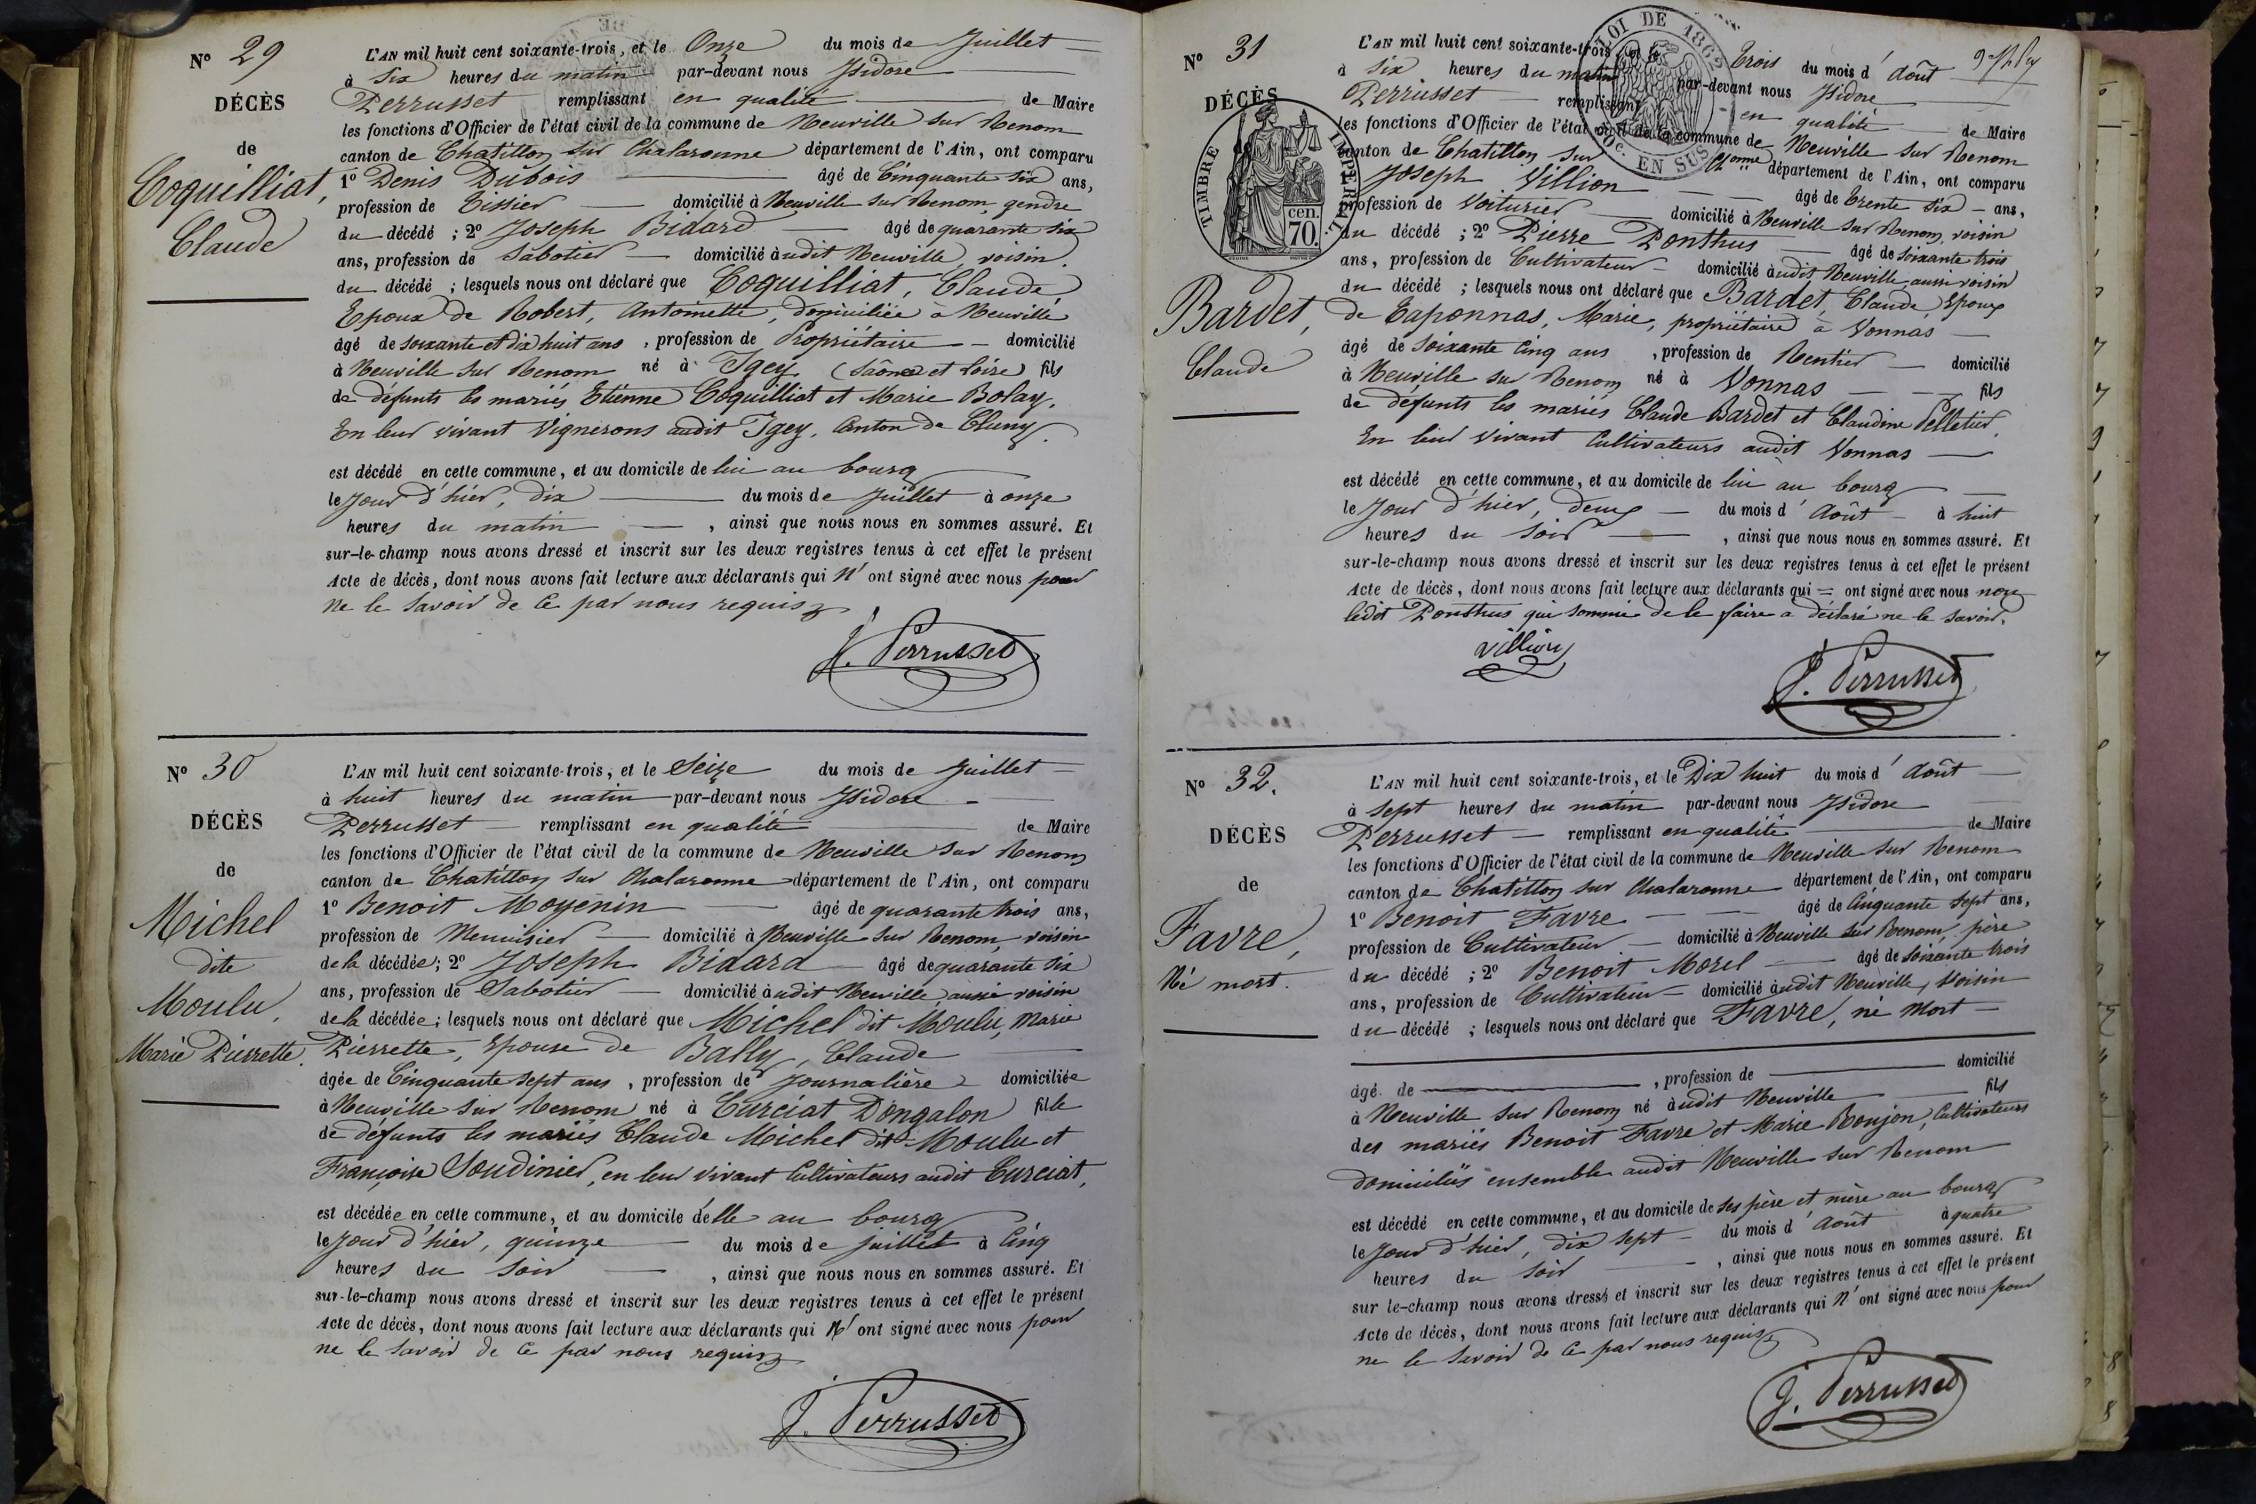 N° 29
DÉCÈS
de
Coquilliat,
Claude
L'AN mil huit cent soixante-trois, et le Onze du mois de Juillet
à Six heures du matin par-devant nous Isidore
Perrusset remplissant en qualité de Maire
les fonctions d'Officier de l'état civil de la commune de Neuville sur Renom
canton de Chatillon sur Chalaronne département de l'Ain, ont comparu
1° Denis Dubois âgé de Cinquante six ans,
profession de Tissier domicilié à Neuville sur Renom, gendre
du décédé ; 2° Joseph Bidard âgé de quarante six
ans, profession de Sabotier domicilié àudit Neuville, voisin
du décédé ; lesquels nous ont déclaré que Coquilliat, Claude
Epoux de Robert, Antoinette, domiciliée à Neuville
âgé de soixante et dix huit ans, profession de Propriétaire domicilié
à Neuville sur Renom né à Igey (Saône et Loire) fils
de défunts les mariés Etienne Coquilliat et Marie Bolay,
En leur vivant Vignerons audit Igey, Canton de Cluny.
est décédé en cette commune, et au domicile de lui au bourg
le Jour d'hier, dix du mois de Juillet à onze
heures du matin, ainsi que nous nous en sommes assuré. Et
sur-le-champ nous avons dressé et inscrit sur les deux registres tenus à cet effet le présent
Acte de décès, dont nous avons fait lecture aux déclarants qui N'ont signé avec nous pour
ne le savoir de ce par nous requis
J. Perrusset
N° 30
DÉCÈS
de
Michel
dite
Moulu,
Marie Pierrette.
L'AN mil huit cent soixante-trois, et le Seize du mois de Juillet
à huit heures du matin par-devant nous Isidore
Perrusset remplissant en qualité de Maire
les fonctions d'Officier de l'état civil de la commune de Neuville sur Renom
canton de Chatillon sur Chalaronne département de l'Ain, ont comparu
1° Benoit Moyenin âgé de quarante trois ans,
profession de Menuisier domicilié à Neuville sur Renom, voisin
de la décédée; 2° Joseph Bidard âgé de quarante six
ans, profession de Sabotier domicilié àudit Neuville, aussi voisin
de la décédée; lesquels nous ont déclaré que Michel dit Moulu, Marie
Pierrette, Epouse de Bally, Claude
âgée de Cinquante sept ans, profession de Journalière domiciliée
à Neuville sur Renom né à Curciat Dongalon fille
de défunts les mariés Claude Michel dit Moulu et
Françoise Soudinier, en leur vivant Cultivateurs audit Curciat,
est décédée en cette commune, et au domicile d'elle au bourg
le Jour d'hier, quinze du mois de Juillet à Cinq
heures du soir, ainsi que nous nous en sommes assuré. Et
sur-le-champ nous avons dressé et inscrit sur les deux registres tenus à cet effet le présent
Acte de décès, dont nous avons fait lecture aux déclarants qui N'ont signé avec nous pour
ne le savoir de ce par nous requis
J. Perrusset
N° 31
DÉCÈS
TIMBRE IMPERIAL
cen. 70.
LOI DE 1862
50c. EN SUS
Bardet,
Claude
L'AN mil huit cent soixante-trois, et le Trois du mois d'Août
à Six heures du matin par-devant nous Isidore
Perrusset remplissant en qualité de Maire
les fonctions d'Officier de l'état civil de la commune de Neuville sur Renom
canton de Chatillon sur Chonne département de l'Ain, ont comparu
Joseph Villion âgé de Trente six ans,
profession de Voiturier domicilié à Neuville sur Renom, voisin
du décédé ; 2° Pierre Ponthus âgé de soixante trois
ans, profession de Cultivateur domicilié àudit Neuville aussi voisin
du décédé ; lesquels nous ont déclaré que Bardet, Claude Epoux
de Taponnas, Marie, propriétaire à Vonnas
âgé de Soixante Cinq ans, profession de Rentier domicilié
à Neuville sur Renom né à Vonnas fils
de défunts les mariés Claude Bardet et Claudine Pelletier,
En leur Vivant Cultivateurs audit Vonnas
est décédé en cette commune, et au domicile de lui au bourg
le Jour d'hier, deux du mois d'Août à huit
heures du Soir, ainsi que nous nous en sommes assuré. Et
sur-le-champ nous avons dressé et inscrit sur les deux registres tenus à cet effet le présent
Acte de décès, dont nous avons fait lecture aux déclarants qui = ont signé avec nous non
ledit Ponthus que sommé de le faire a déclaré ne le savoir.
Villion
J. Perrusset
N° 32.
DÉCÈS
de
Favre,
Né mort.
L'AN mil huit cent soixante-trois, et le Dix huit du mois d'Août
à Sept heures du matin par-devant nous Isidore
Perrusset remplissant en qualité de Maire
les fonctions d'Officier de l'état civil de la commune de Neuville sur Renom
canton de Chatillon sur Chalaronne département de l'Ain, ont comparu
1° Benoit Favre âgé de Cinquante sept ans,
profession de Cultivateur domicilié à Neuville sur Renom, père
du décédé ; 2° Benoit Morel âgé de soixante trois
ans, profession de Cultivateur domicilié àudit Neuville, Voisin
du décédé ; lesquels nous ont déclaré que Favre, né Mort
âgé de, profession de domicilié
à Neuville sur Renom né àudit Neuville fils
des mariés Benoit Favre et Marie Roujon, Cultivateurs
domiciliés ensemble audit Neuville sur Renom
est décédé en cette commune, et au domicile de ses père et mère au bourg
le Jour d'hier, dix sept du mois d'Août à quatre
heures du Soir, ainsi que nous nous en sommes assuré. Et
sur le-champ nous avons dressé et inscrit sur les deux registres tenus à cet effet le présent
Acte de décès, dont nous avons fait lecture aux déclarants qui N'ont signé avec nous pour
ne le savoir de ce par nous requis
J. Perrusset